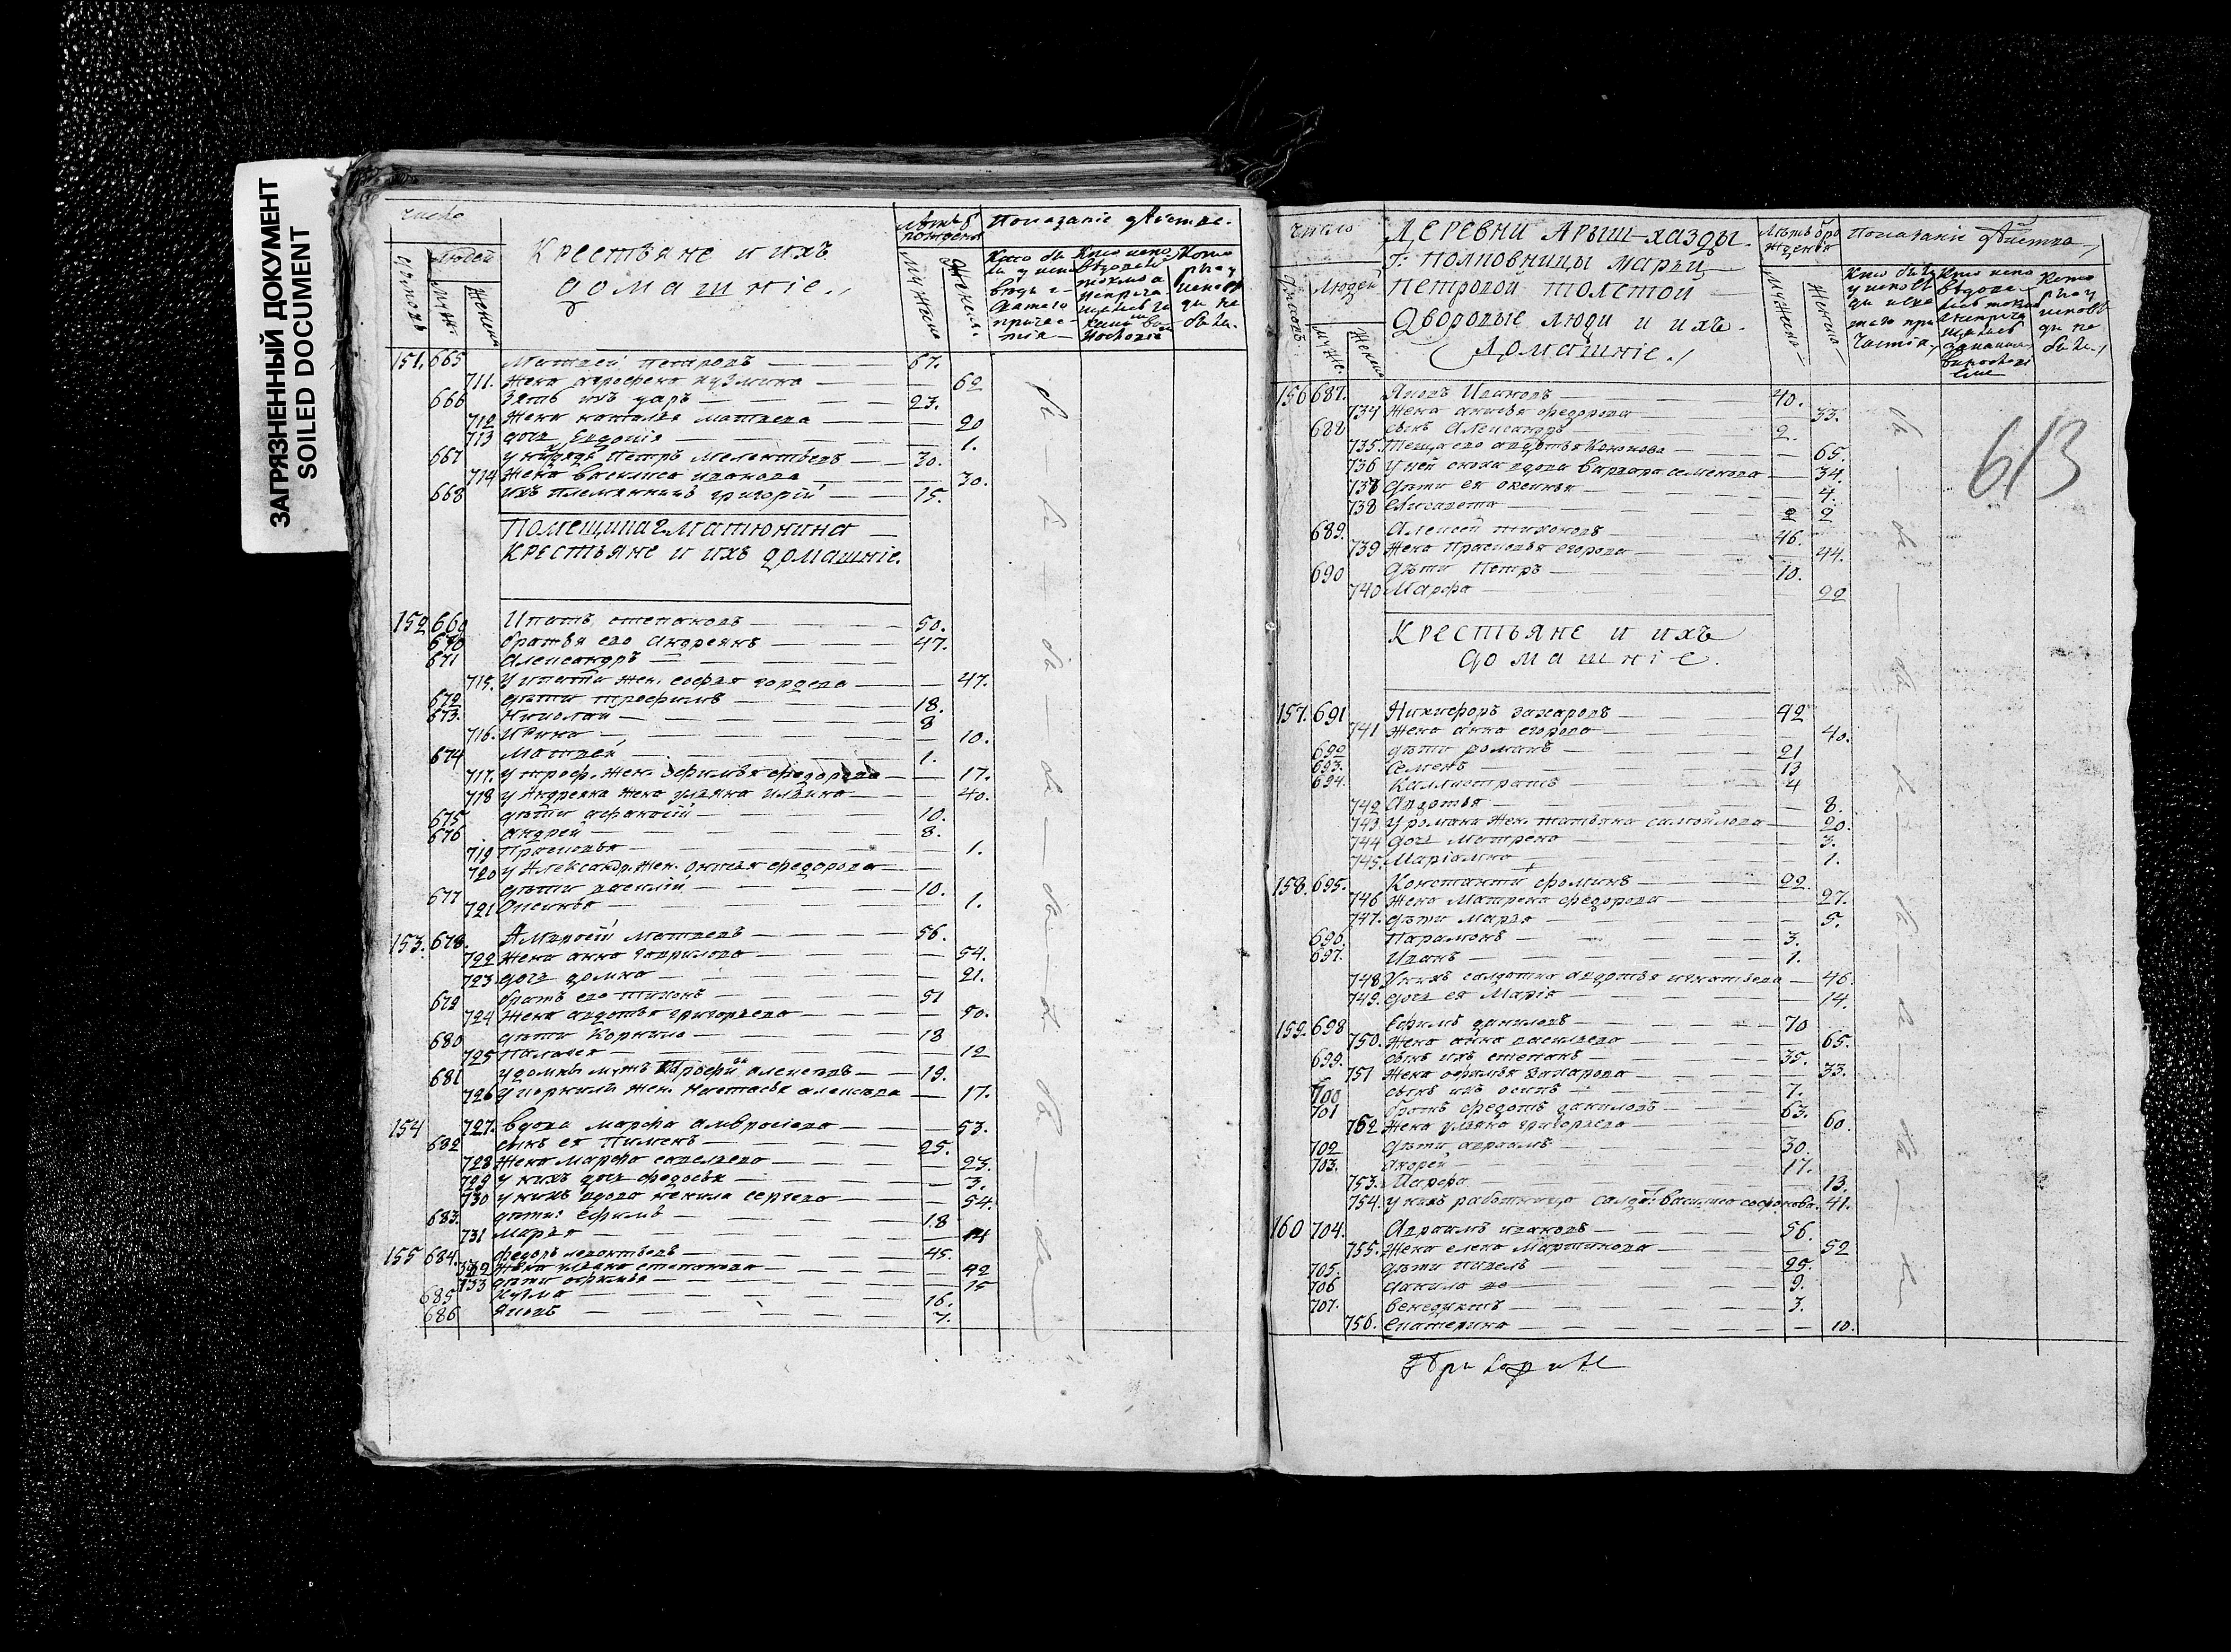 ЗАГРЯЗНЕННЫЙ ДОКУМЕНТ
SOILED DOCUMENT
число
людей
Крестьяне и ихъ
домашніе.
Показаніе дѣйства.
151. 665 Матвей петровъ — 67.
711. жена агрофена кузмина — 62
666 зять ихъ уаръ — 23.
712 жена наталья матвева — 20
713 дочь Евдокія — 1.
667 Петръ Мелентьевъ — 30.
714 жена василиса иванова — 30.
668 ихъ племянникъ григорій — 15.
Помещика г. матюнина
крестьяне и ихъ домашніе.
152 669 Ипатъ степановъ — 50.
670 братья его андреянъ — 47.
671 александръ —
715. У ипата жен. софья гордева — 47.
672 дѣти трофимъ — 18.
673. Николай — 8
716. Ирина — 10.
674 матвей — 1.
717. у троф. жен. Ефимья федорова — 17.
718 у Андреяна жена ульяна ильина — 40.
675 дѣти афанасій — 10.
676 андрей — 8.
719 Прасковья — 1.
720 у Александр. жен. федорова —
677 дѣти василій — 10.
721 Оксинья — 1.
153. 678. Амвросій матвевъ — 56.
722 жена анна гаврилова — 54.
723 дочь домна — 21.
679 братъ его тихонъ — 51
724 жена авдотья григорьева — 50.
680 дѣти Корнило — 18
725 палагея — 12
681 у домны мужъ алексевъ — 19.
726 у корнилы жен. Настасья алексева — 17.
154 727. вдова марфа амвросіева — 53.
682 сынъ ея Пименъ — 25.
728 жена марфа савельева — 23.
729 у нихъ дочь федосья — 3.
730 у нихъ вдова ненила сергева — 54.
683. дѣти Ефимъ — 18
731 марья —
155 684. федоръ леонтьевъ — 45.
732 жена ульяна степанова — 42
733 дѣти офимья — 15
685 кузма — 16.
686 яковъ — 7.
число
людей
Деревни Арыш-хазды.
г. полковницы марьи
петровой толстой
Дворовые люди и ихъ
домашніе.
Показаніе дѣйства
613
156 687. Яковъ Ивановъ — 40.
734 жена анисья федорова — 33.
688 сынъ Александръ — 2.
735. Теща его авдотья — 65.
736 у ней сноха вдова варвара семенова — 34.
737 дѣти ея оксинья — 4.
738 Елисавета — 2
689. Алексей тихоновъ — 46.
739 жена Прасковья егорова — 44.
690 дѣти Петръ — 10.
740 Марфа — 22
Крестьяне и ихъ
домашніе.
157. 691 Никифоръ захаровъ — 42
741 жена анна егорова — 40.
692 дѣти романъ — 21
693. Семенъ — 13
694. Каллистратъ — 4
742 Авдотья — 8.
743. У романа жен. татьяна самойлова — 20.
744 дочь матрена — 3.
745. Маріамна — 1.
158. 695. Константи фоминъ — 22.
746 жена Матрена федорова — 27.
747. дѣти марья — 5.
696. Парамонъ — 3.
697. Иванъ — 1.
748. У нихъ салдатка авдотья игнатьева — 46.
749. дочь ея Марія — 14.
159. 698 Ефимъ даниловъ — 70
750. жена анна васильева — 65.
699. сынъ ихъ степанъ — 35.
751 жена офимья захарова — 33.
700 сынъ ихъ осипъ — 7.
701 братъ федотъ даниловъ — 63.
752 жена ульяна григорьева — 60.
702 дѣти авраамъ — 30.
703. андрей — 17.
753. Марфа — 13.
754. у нихъ работница салдат. василиса софонова. 41.
160 704. Авраамъ ивановъ — 56.
755. жена елена Мартинова — 52
705. дѣти — 25.
706 данила — 9.
707. венедиктъ — 3.
756. Екатерина — 10.